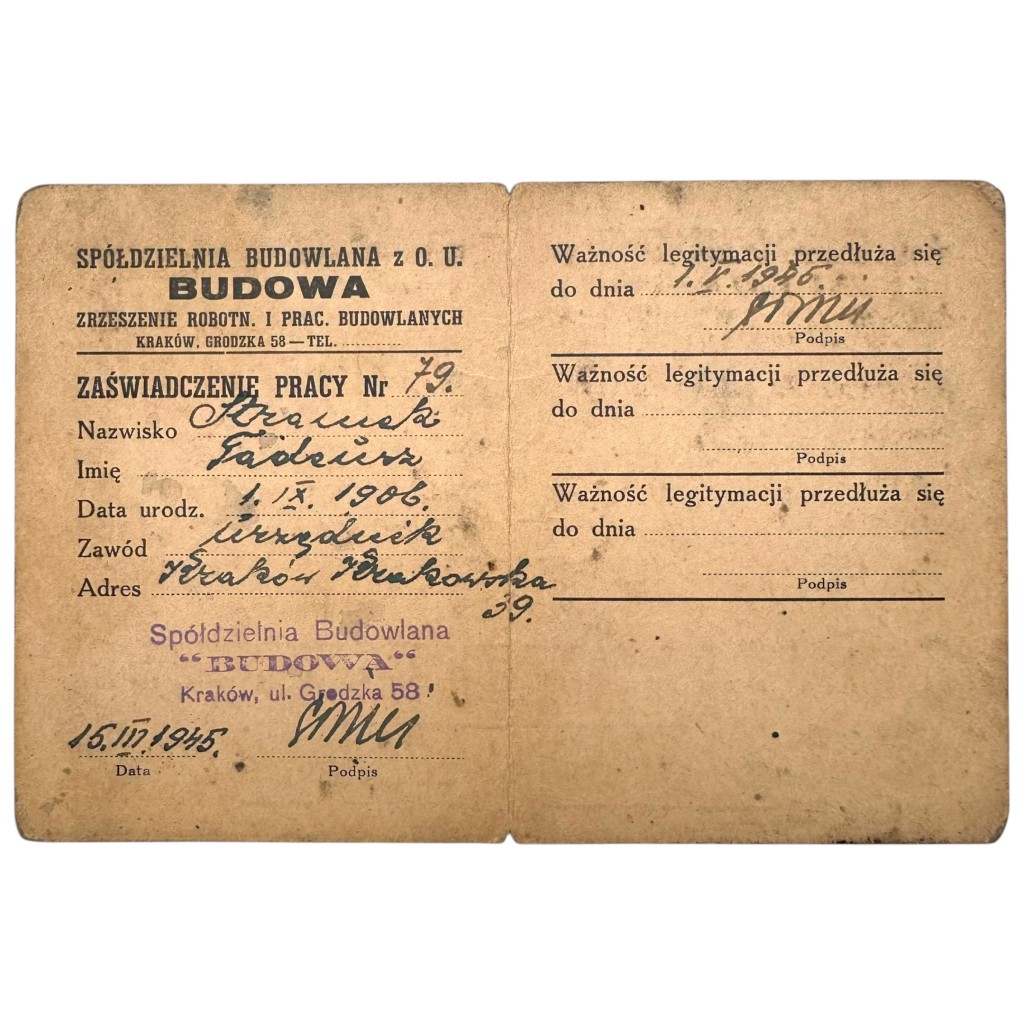 SPÓŁDZIELNIA BUDOWLANA z O. U.
BUDOWA
ZRZESZENIE ROBOTN. I PRAC. BUDOWLANYCH
KRAKÓW, GRODZKA 58 — TEL.
ZAŚWIADCZENIE PRACY Nr 79.
Nazwisko
Imię Tadeusz
Data urodz. 1. IX. 1906.
Zawód urzędnik
Adres Kraków Krakowska
39.
Spółdzielnia Budowlana
"BUDOWA"
Kraków, ul. Grodzka 58
15.III.1945.
Data Podpis
Ważność legitymacji przedłuża się
do dnia 1.V.1945.
Podpis
Ważność legitymacji przedłuża się
do dnia
Podpis
Ważność legitymacji przedłuża się
do dnia
Podpis